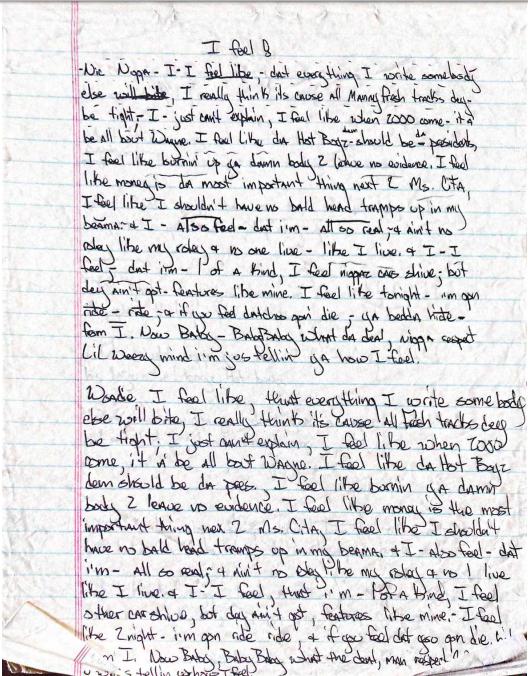 I feel
I - I feel like - dat everything I write somebody
else will bite, I really think its cause all Mannyfresh tracks dey
be tight, I - just can't explain, I feel like when 2000 come - it'a
be all bout Wayne. I feel like da Hot Boyz dem should be da presidents,
I feel like burnin up ya damn body 2 leave no evidence. I feel
like money is da most important thing next 2 Ms. Cita,
I feel like I shouldn't have no bald head tramps up in my
beama; & I - also feel - dat i'm - all so real; & ain't no
roley like my roley & no one live - like I live. & I - I
feel; dat i'm - 1 of a kind, I feel niggaz cars shive; but
dey ain't got - features like mine. I feel like tonight - i'm gon
ride - ride; & if you feel datchoo gon' die - ya bedda hide -
from I. Now Baby - BabyBaby what da deal, nigga respect
Lil Weezy mind i'm jus tellin ya how I feel.
Woadie I feel like, that everything I write somebody
else will bite, I really think it's cause all fresh tracks deey
be tight. I just can't explain, I feel like when 2000
come, it'a be all bout Wayne. I feel like da Hot Boyz
dem should be da pres., I feel like burnin ya damn
body 2 leave no evidence. I feel like money is the most
important thing nex 2 Ms. Cita, I feel like I shouldn't
have no bald head tramps up in my beama. & I - also feel - dat
i'm - all so real; & ain't no roley like my roley & no 1 live
like I live. & I - I feel, that i'm - 1 of a kind, I feel
other car shive, but dey ain't got, features like mine. - I feel
like 2night - i'm gon ride ride & if you feel dat you gon die.
I. Now Baby, Baby Baby what the deal, man respect
tellin I feel